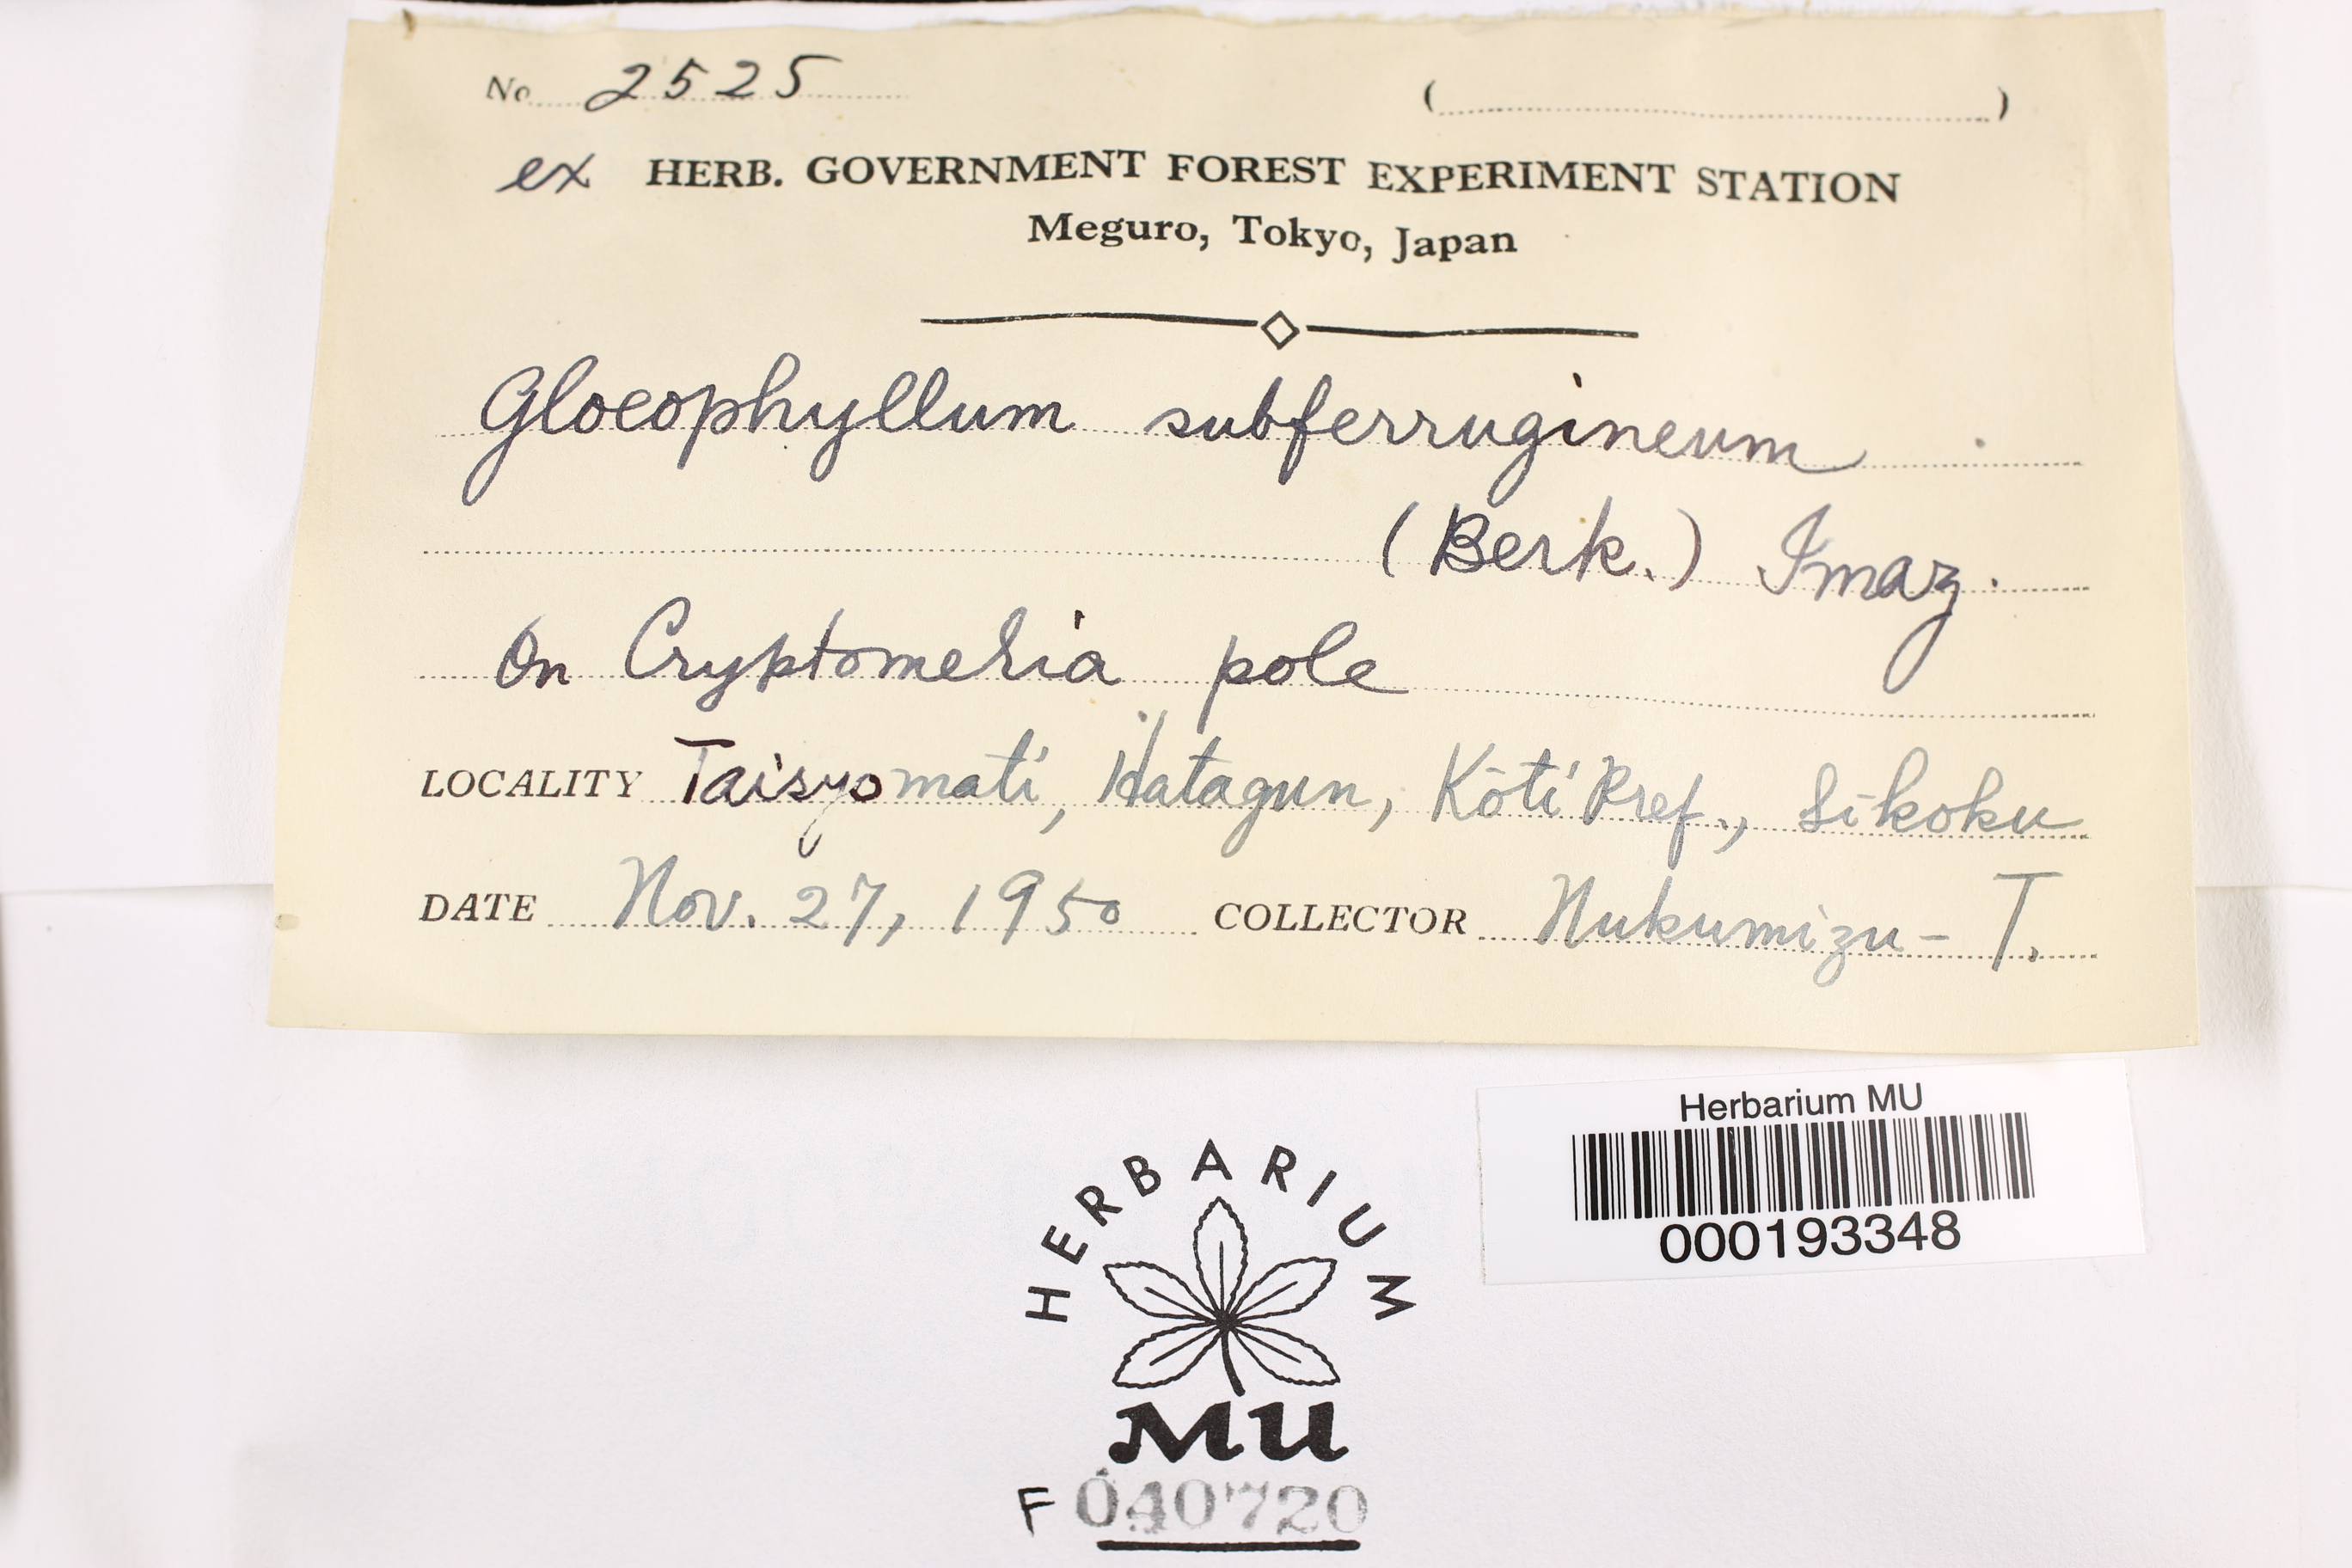 No. 2525 ( )
ex HERB. GOVERNMENT FOREST EXPERIMENT STATION
Meguro, Tokyo, Japan
Gloeophyllum subferrugineum
(Berk.) Imaz.
On Cryptomeria pole
LOCALITY Taisyomati, Hatagun, Kōti Pref., Sikoku
DATE Nov. 27, 1950 COLLECTOR Nukumizu - T.
Herbarium MU
000193348
HERBARIUM
MU
F 040720